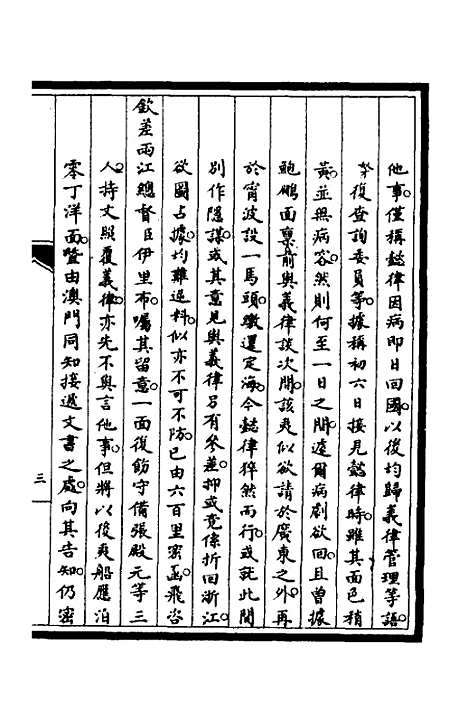 他事。僅稱懿律因病即日回國。以後均歸義律管理等語。
復查詢委員等。據稱初六日接見懿律時。雖其面色稍
黃。並無病容。然則何至一日之間。遽爾病劇欲回。且曾據
鮑鵬面稟。前與義律談次間。該夷似欲請於廣東之外。再
於甯波設一馬頭。繳還定海。今懿律猝然而行。或詭此間
別作隱謀。或其意見與義律另有參差。抑或竟係折回浙江。
欲圖占據。均難逆料。似亦不可不防。已由六百里密函飛咨
欽差兩江總督臣伊里布。囑其留意。一面復飭守備張殿元等三
人。持文照覆義律。亦先不與言他事。但將以後夷船應泊
零丁洋面。暨由澳門同知接遞文書之處。向其告知。仍密
三